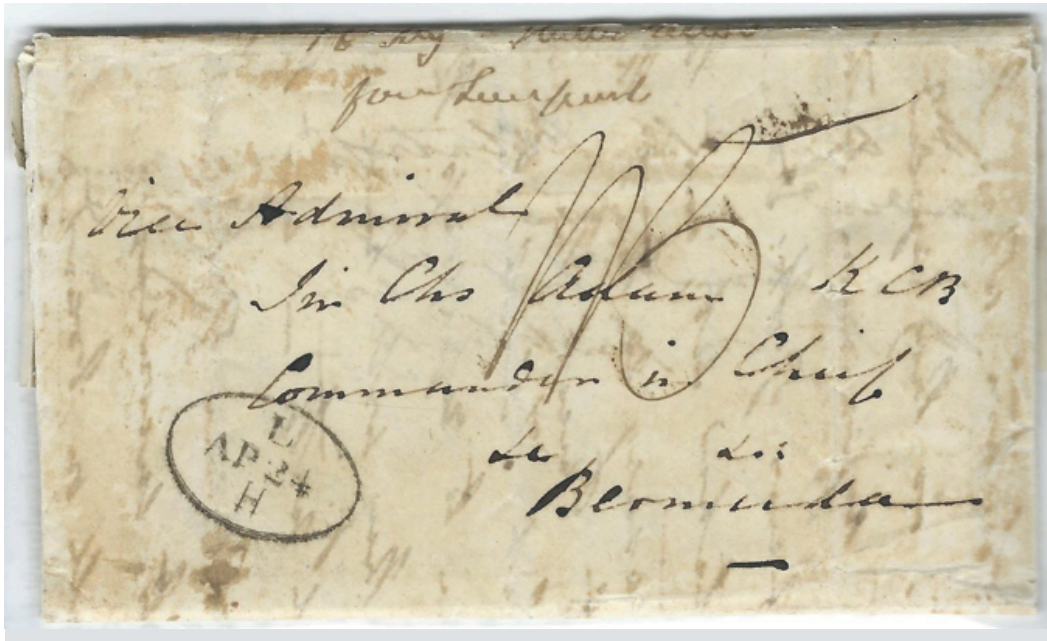 Vice Admiral
Sir Chs Adam KCB
Commander in Chief
&c &c
Bermuda
1/6
L
AP 24
H